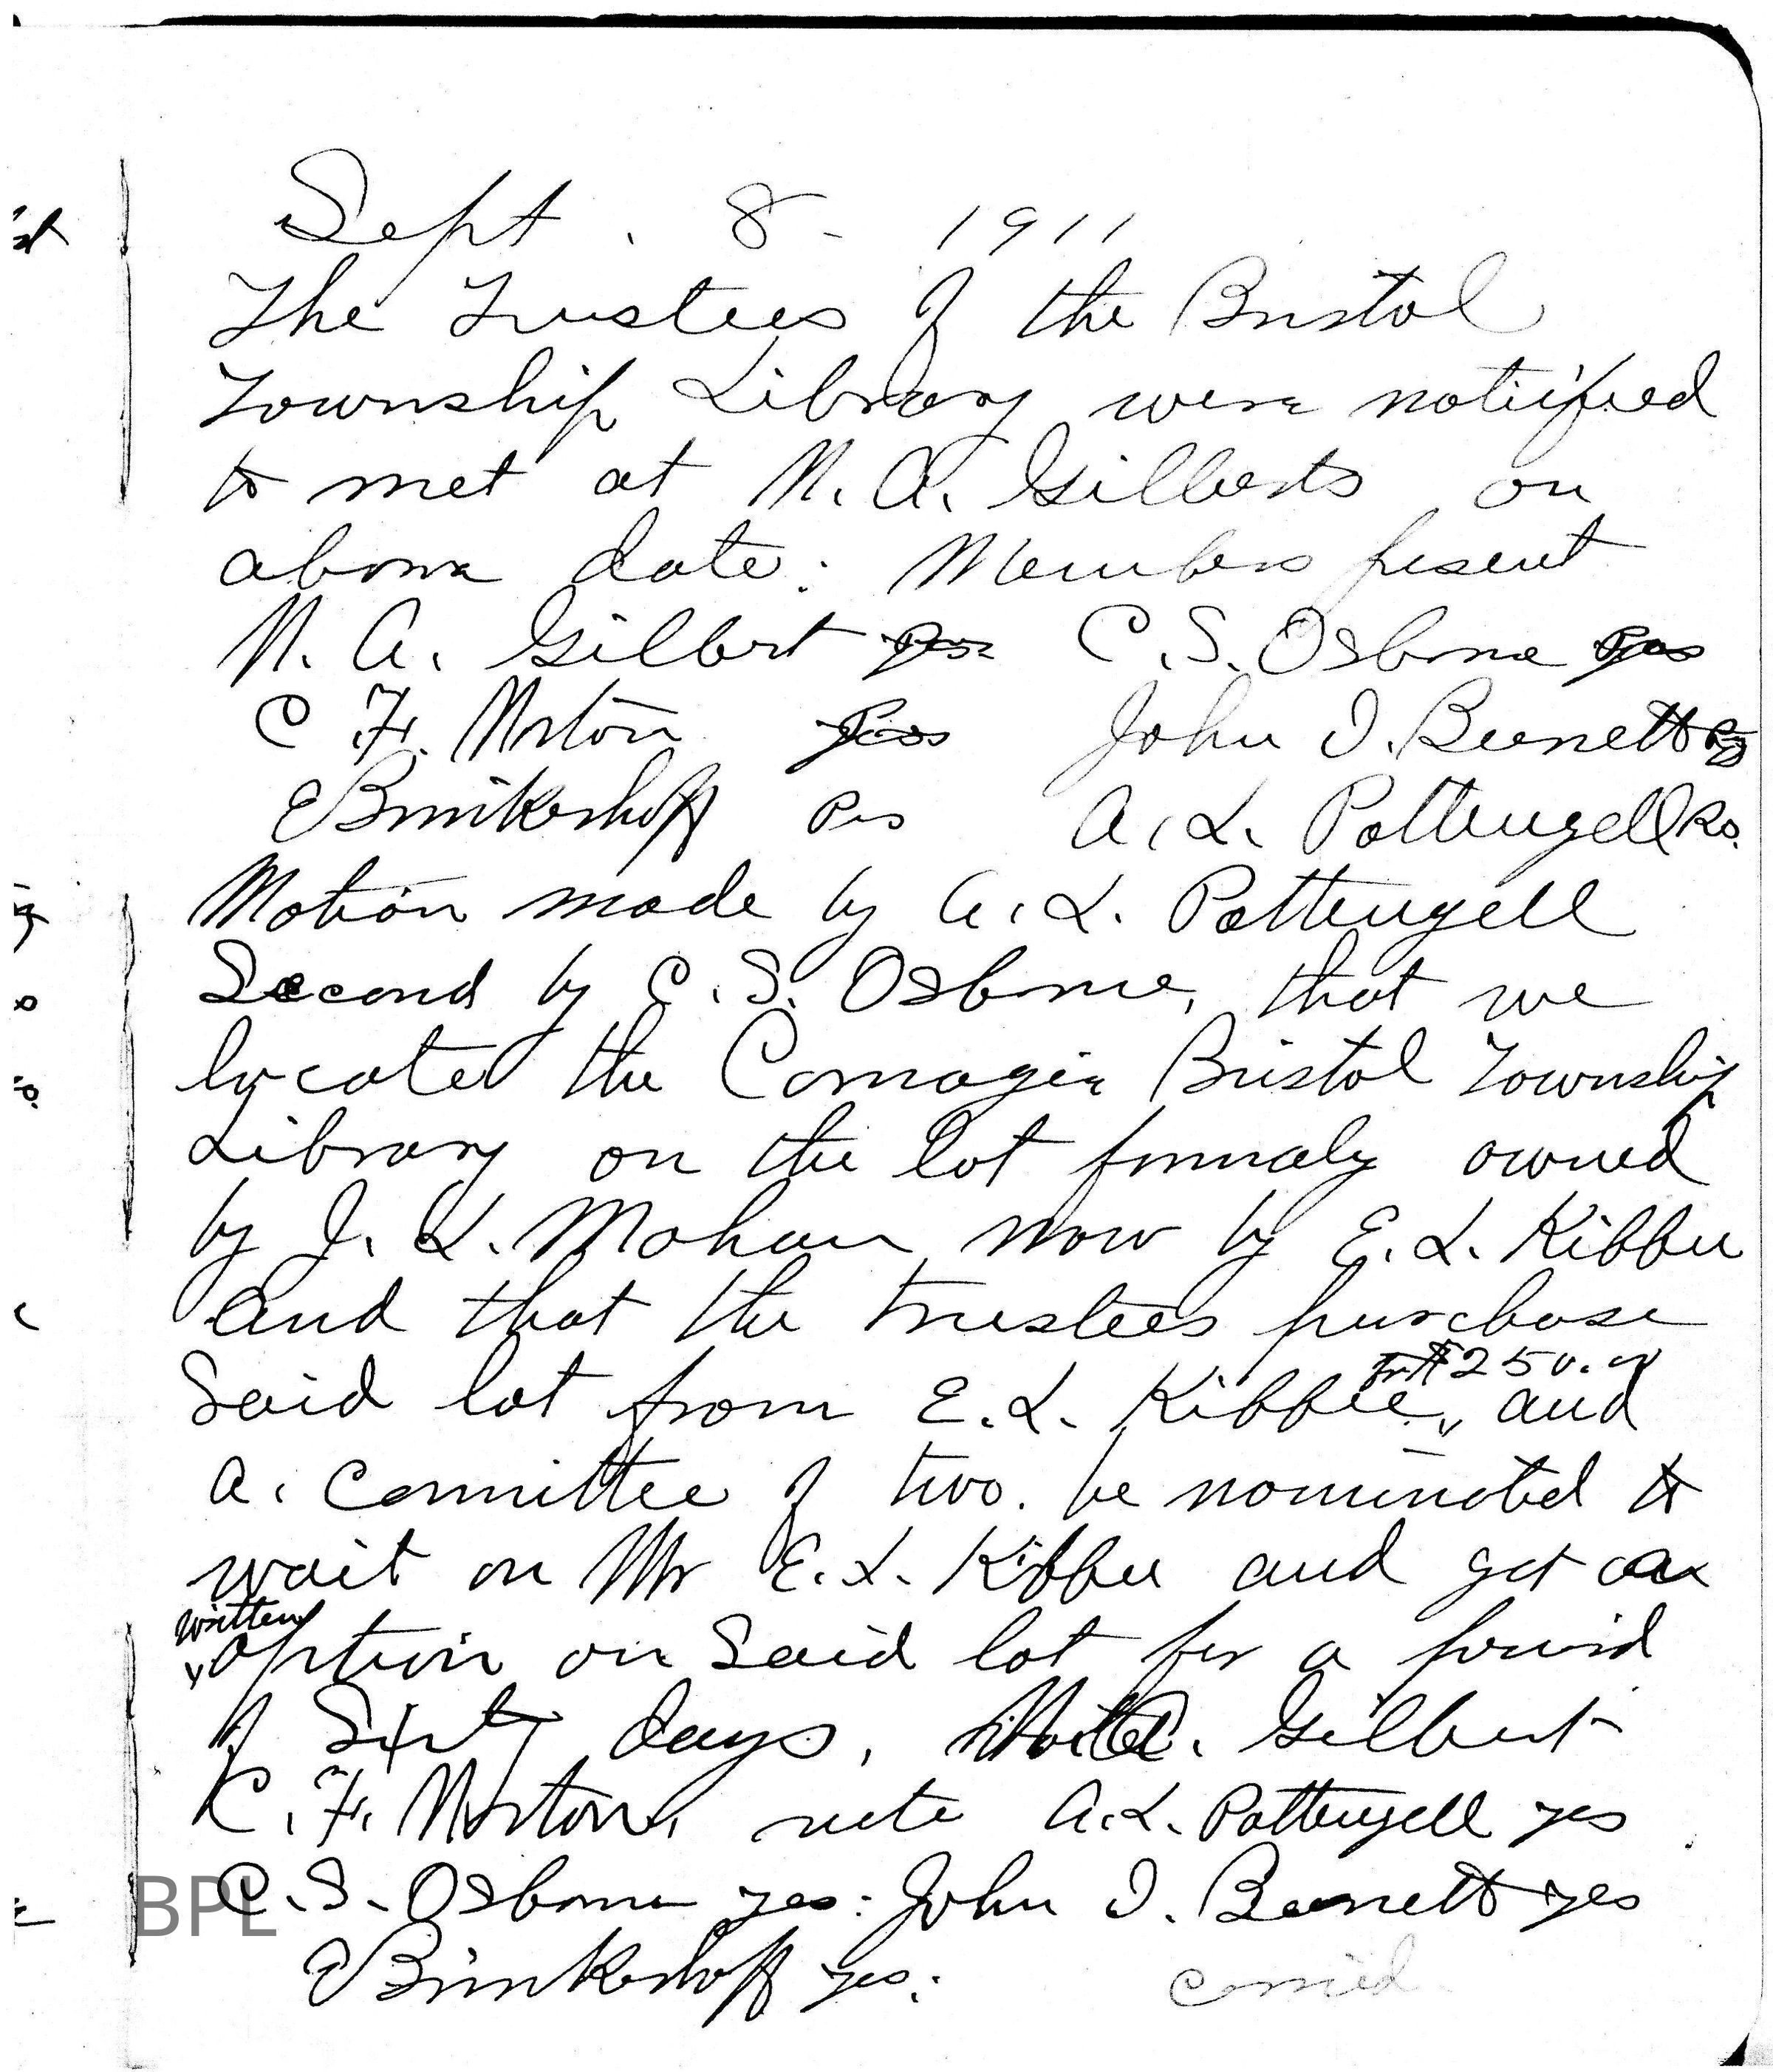 Sept. 8 - 1911
The Trustees of the Bristol
Township Library were notified
to met at N. A. Gilberts on
above date: Members present
N. A. Gilbert C. S. Osborne
C F. Norton John I. Bennett
E Brinkerhoff Pres A. L. Pottengell
Motion made by A. L. Pottengell
Second by C. S. Osborne, that we
locate the Carnagie Bristol Township
Library on the lot formaly owned
by J. L. Mohan now by E. L. Kibbee
and that the trustees purchase
for $250.00
Said lot from E. L. Kibbee, and
a. Committee of two. be nominated to
wait on Mr E. L. Kibbee and get an
written
option on Said lot for a period
of Sixty days, Gilbert
C. F. Norton, A. L. Pottengell yes
C. S. Osborne yes: John I. Bennett yes
E Brinkerhoff yes: carried
BPL